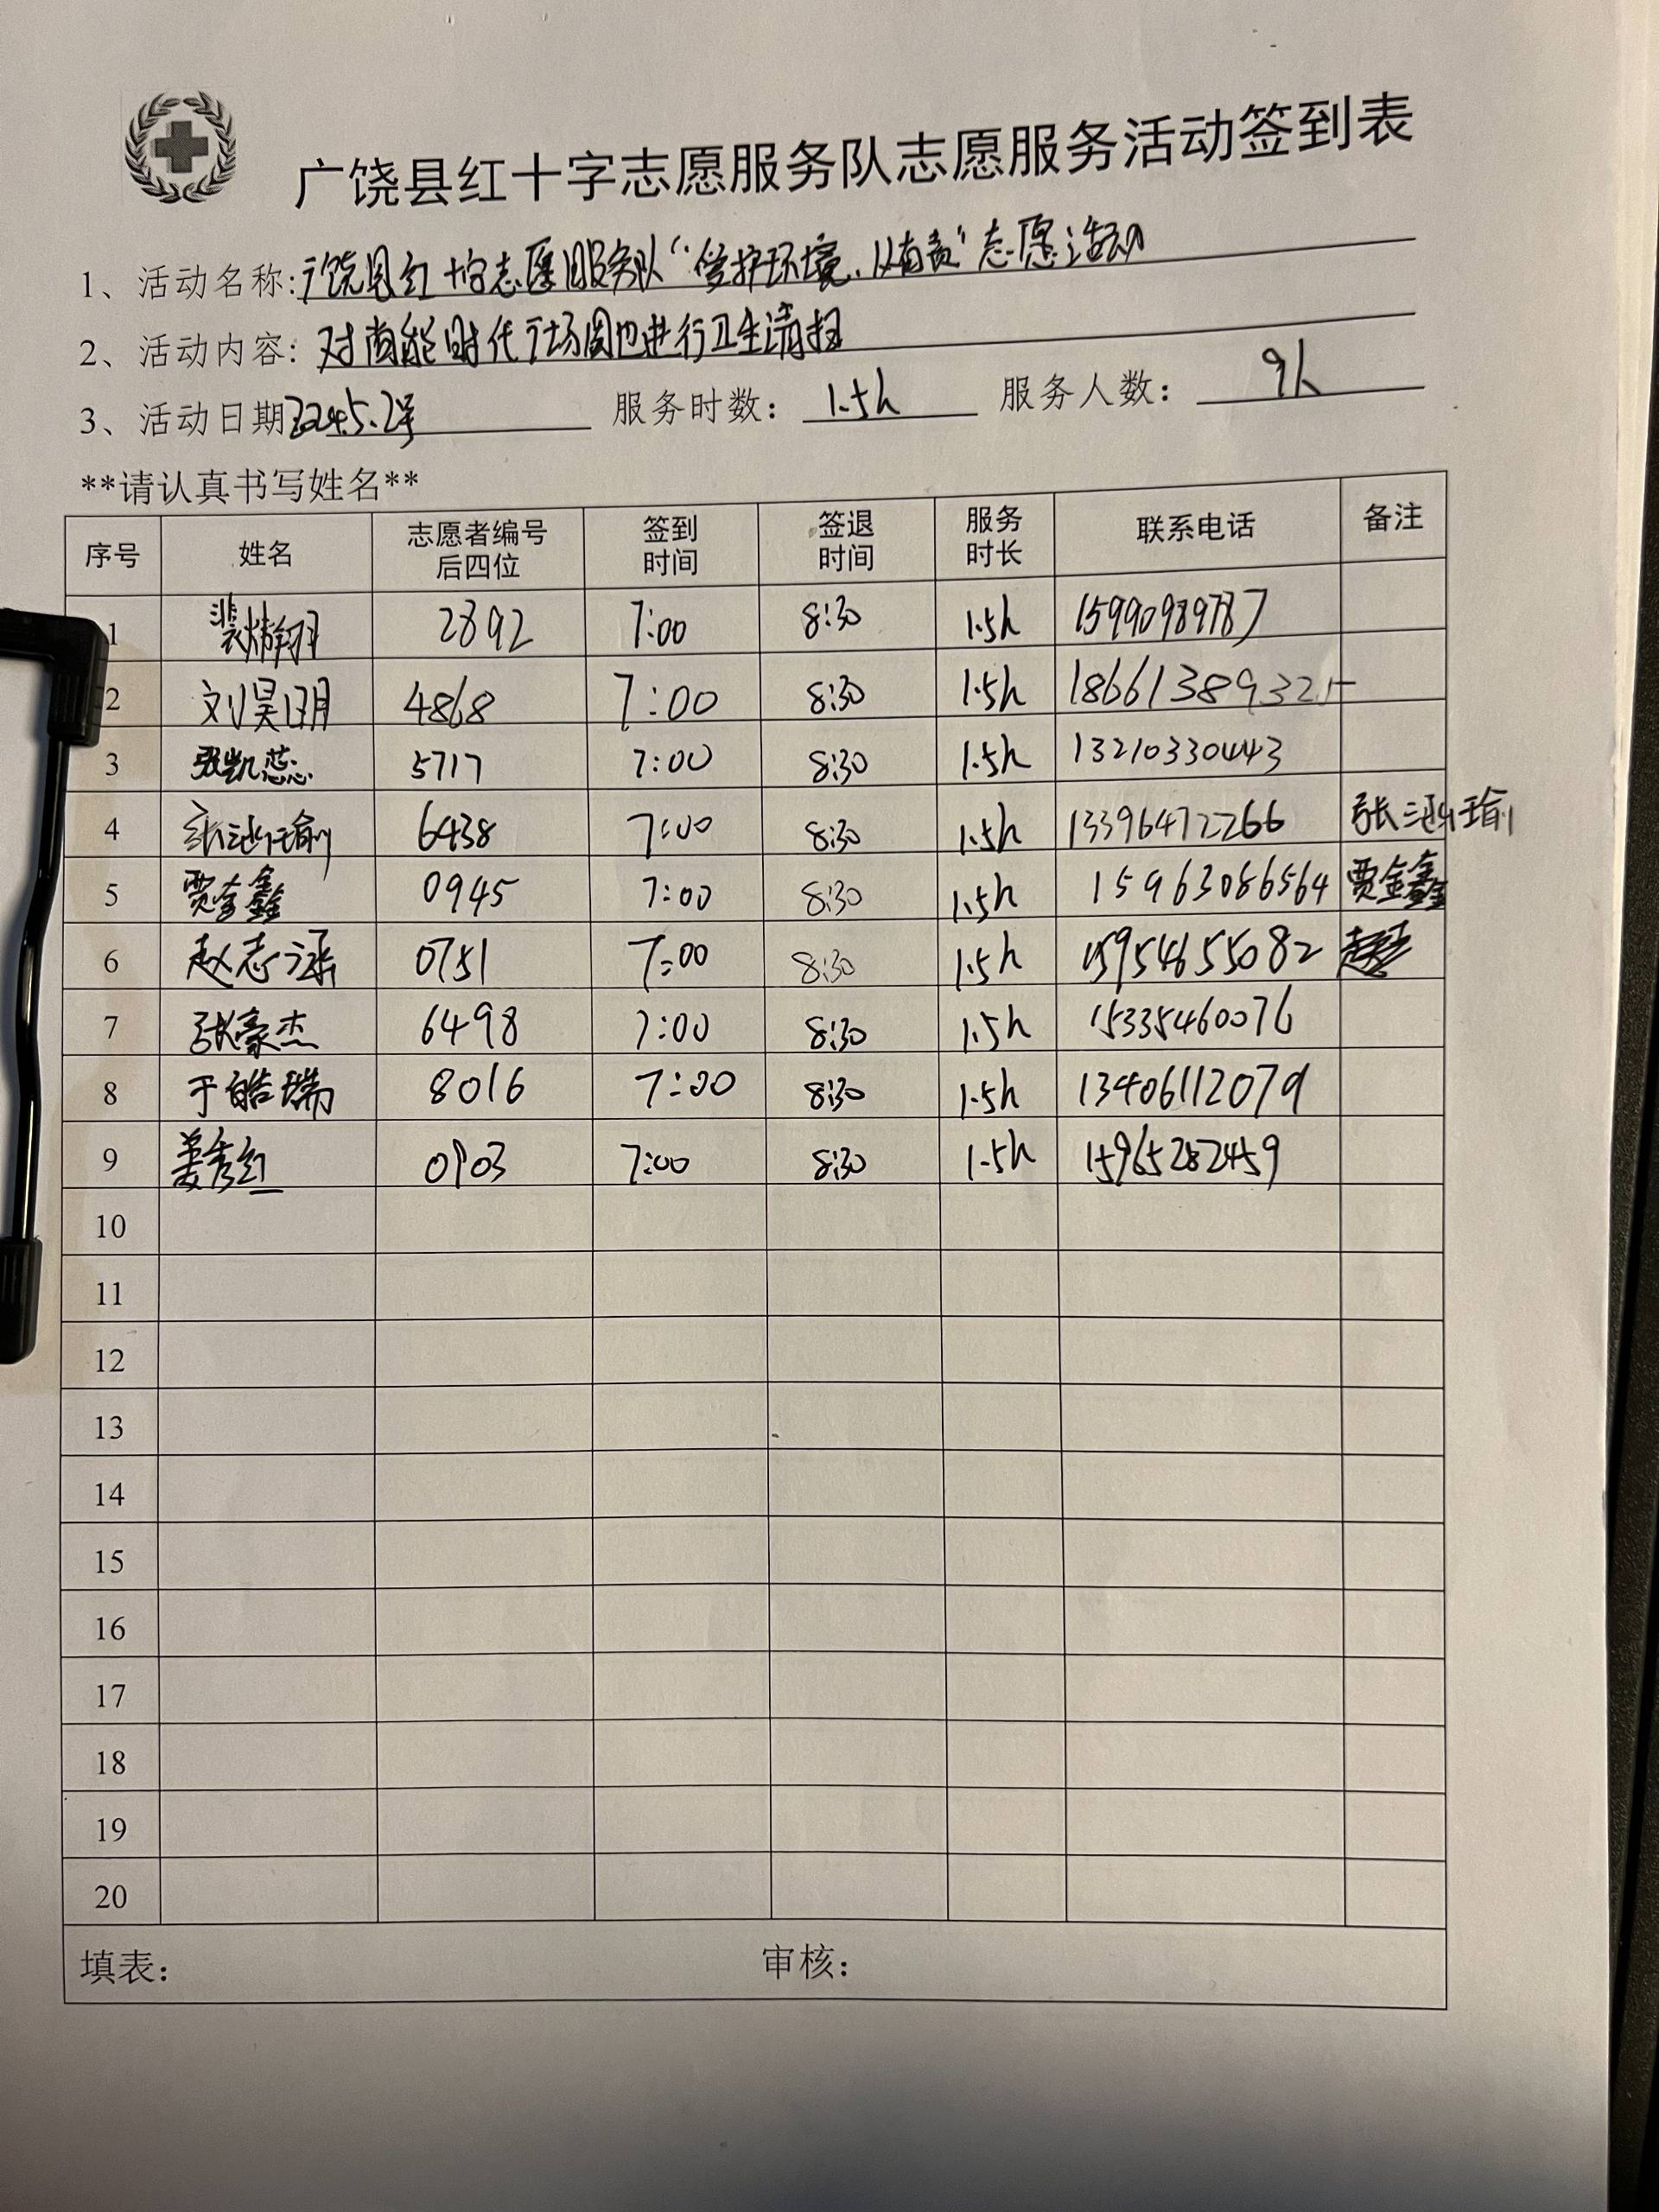 广饶县红十字志愿服务队志愿服务活动签到表
1、活动名称:广饶县红十字志愿服务队“爱护环境,人有责”志愿活动
2、活动内容: 对尚能时代广场周边进行卫生清扫
3、活动日期2024.5.2号 服务时数: 1.5h 服务人数: 9人
**请认真书写姓名**
序号 姓名 志愿者编号后四位 签到时间 签退时间 服务时长 联系电话 备注
1 2892 7:00 8:30 1.5h 15990989787
2 刘昊明 4868 7:00 8:30 1.5h 18661389325
3 张凯蕊 5717 7:00 8:30 1.5h 13210330443
4 张瑜 6438 7:00 8:30 1.5h 13396472266 张瑜
5 贾金鑫 0945 7:00 8:30 1.5h 15963086564 贾金鑫
6 赵志 0751 7:00 8:30 1.5h 15954655082
7 张豪杰 6498 7:00 8:30 1.5h 15335460076
8 于皓瑞 8016 7:00 8:30 1.5h 13406112079
9 姜秀红 0903 7:00 8:30 1.5h 15965282459
10
11
12
13
14
15
16
17
18
19
20
填表: 审核: